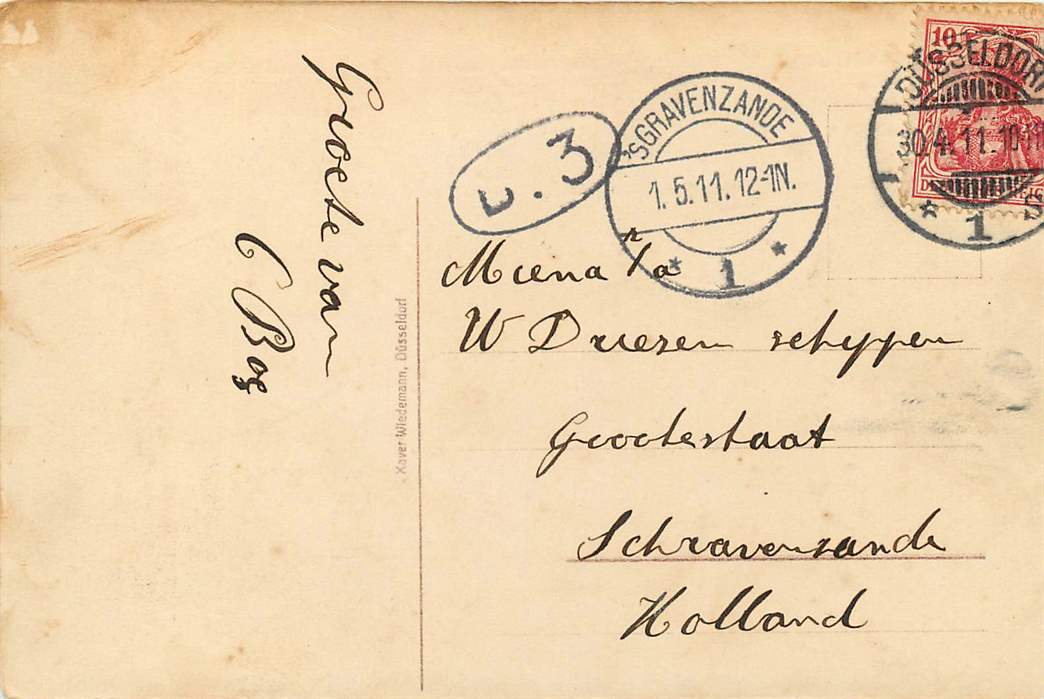 Groete van
C Bos
Xaver Wiedemann, Düsseldorf
D. 3
'SGRAVENZANDE
1.5.11.12-1N.
1
10
DÜSSELDORF
30.4.11.10-11
1
Miena
W Driesen schippen
Grootestaat
Schravensande
Holland